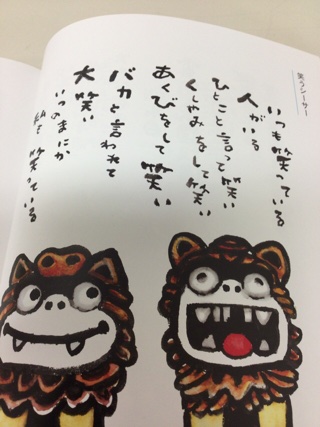 笑うシーサー
いつも笑っている
人がいる
ひとこと言って笑い
くしゃみをして笑い
あくびをして笑い
バカと言われて
大笑い
いつのまにか
私も笑っている